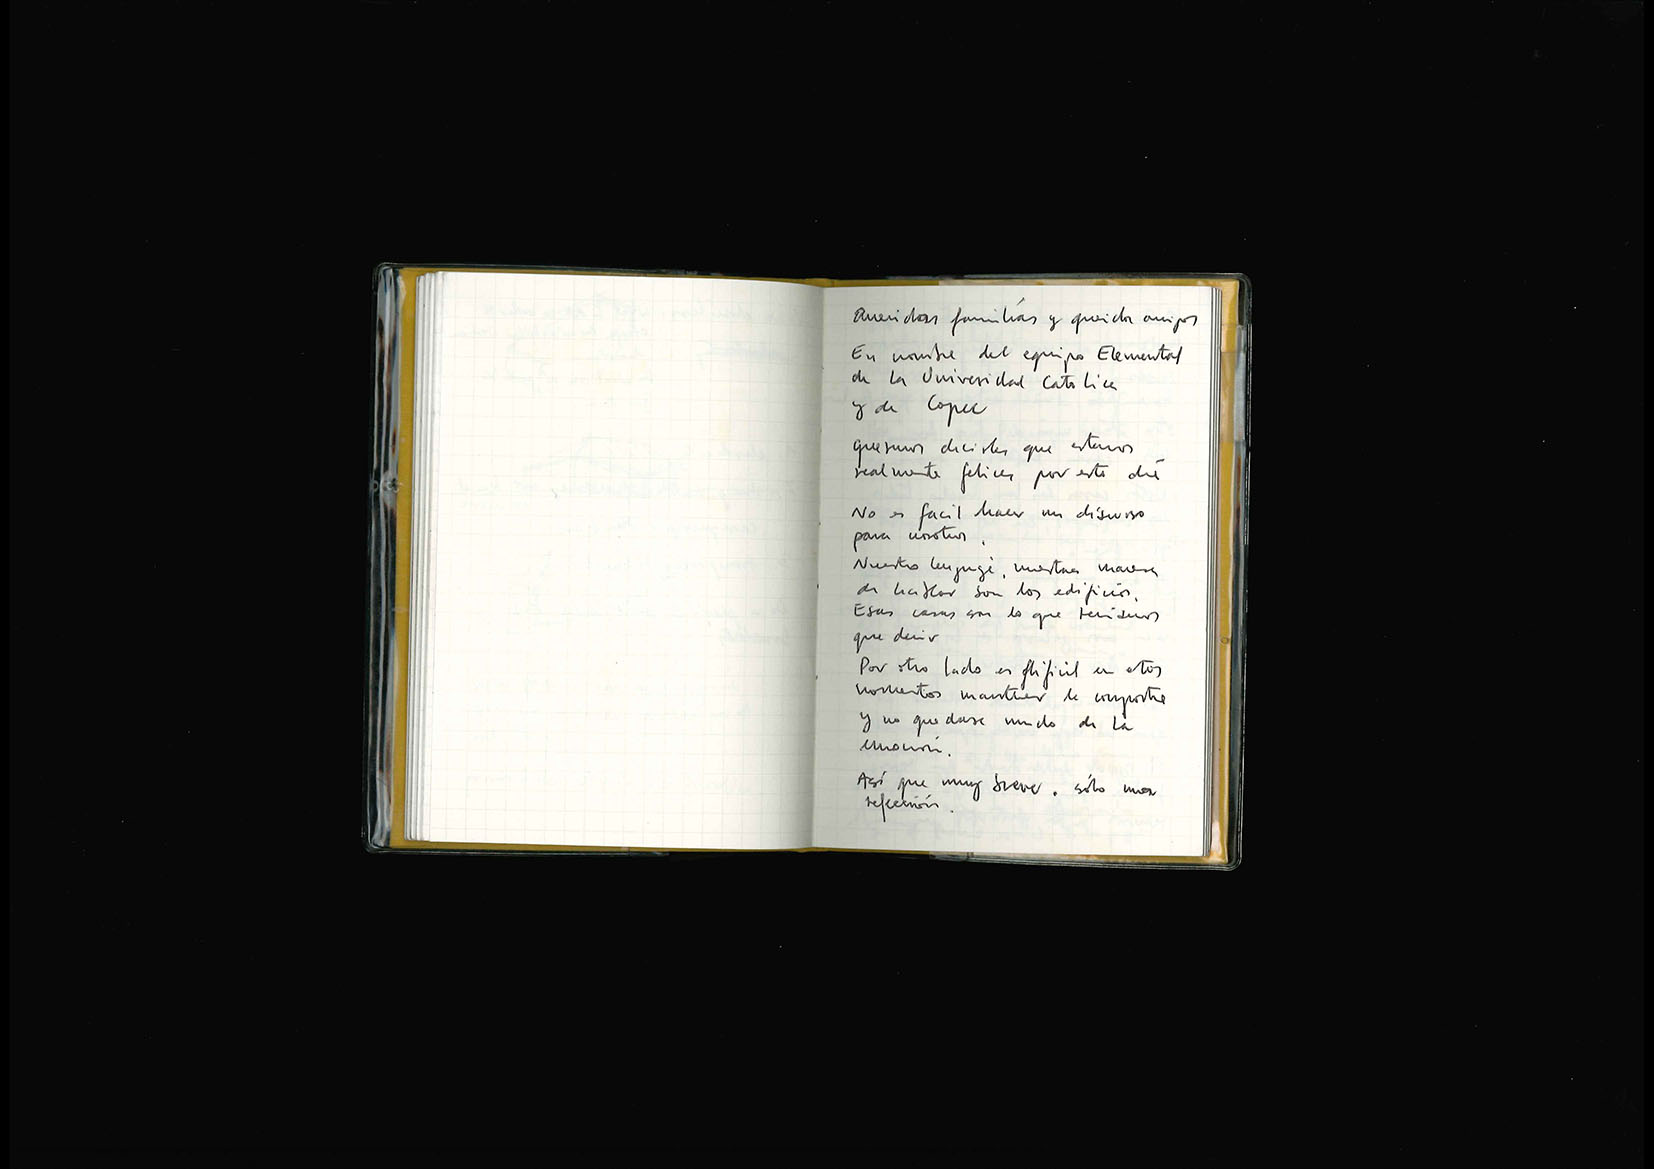 Queridas familias y queridos amigos
En nombre del equipo Elemental
de la Universidad Católica
y de Copec
queremos decirles que estamos
realmente felices por este día
No es facil hacer un discurso
para nosotros.
Nuestro lenguaje, nuestra manera
de hablar son los edificios.
Esas casas son lo que teníamos
que decir
Por otro lado es difícil en estos
momentos mantener la compostura
y no quedarse mudo de la
emoción.
Así que muy breve, sólo una
reflexión.